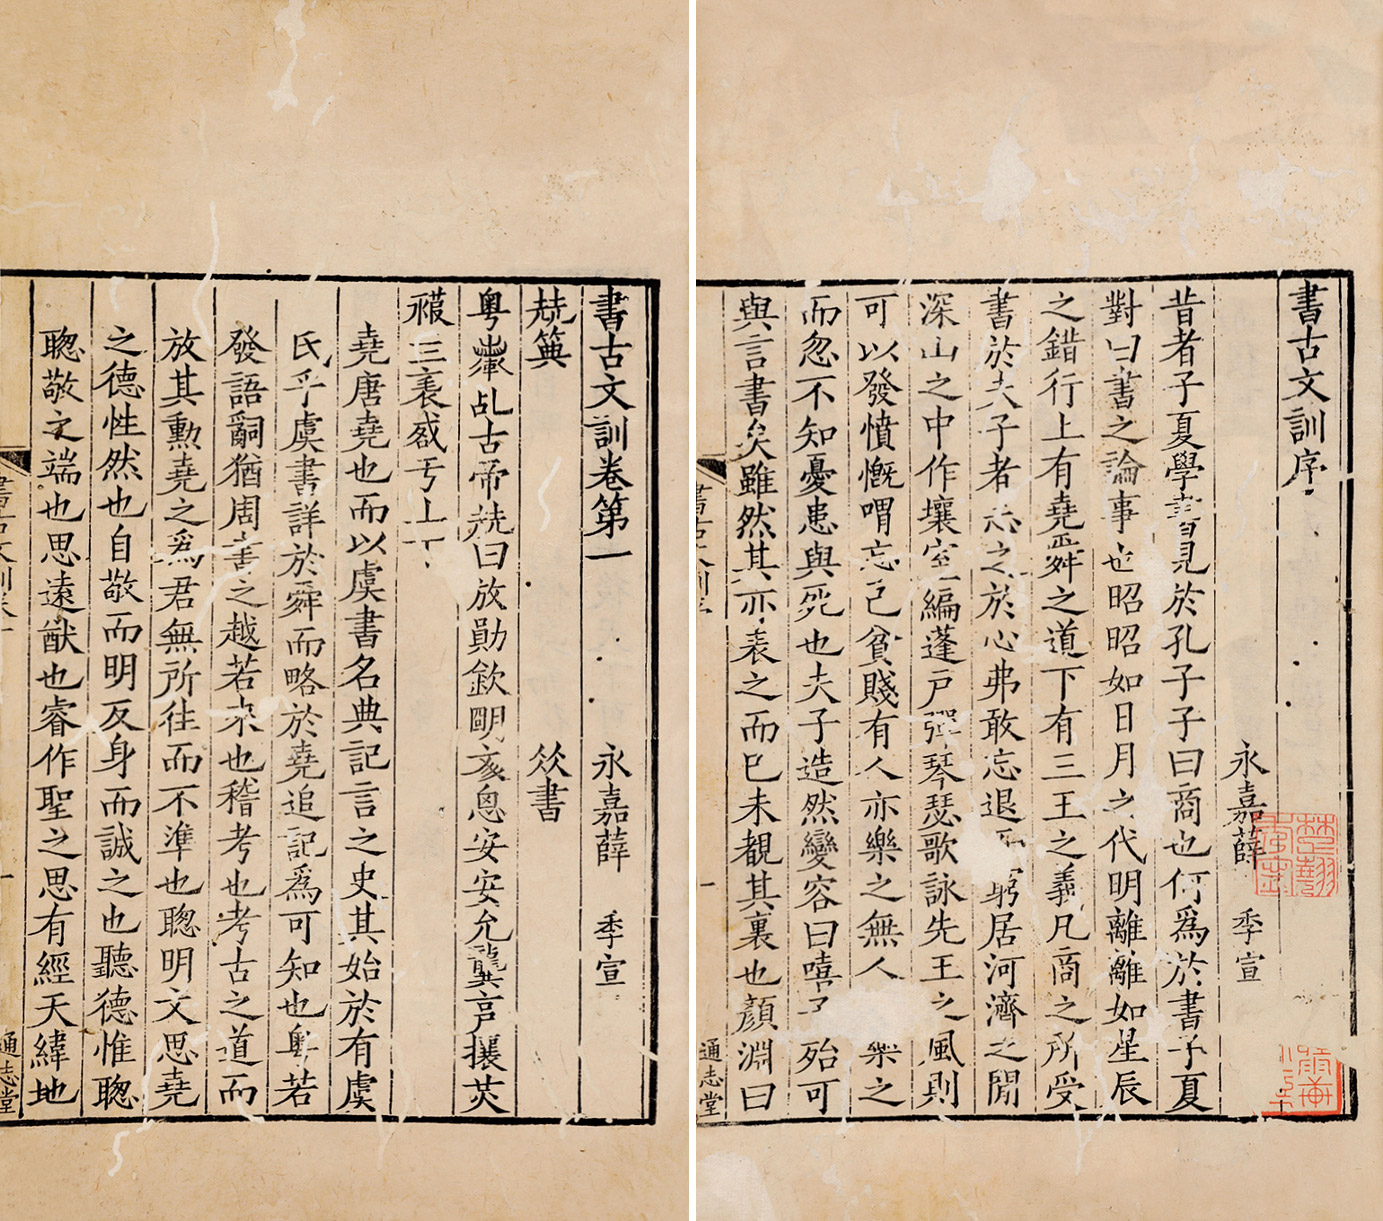 書古文訓序
永嘉薛 季宣
昔者子夏學書見於孔子子曰商也何爲於書子夏
對曰書之論事也昭昭如日月之代明離離如星辰
之錯行上有堯舜之道下有三王之義凡商之所受
書於夫子者志之於心弗敢忘退而窮居河濟之閒
深山之中作壤室編蓬戸彈琴瑟歌詠先王之風則
可以發憤慨喟忘己貧賤有人亦樂之無人樂之
而忽不知憂患與死也夫子造然變容曰嘻子殆可
與言書矣雖然其亦表之而已未覩其裏也顏淵曰
書古文訓序
一
通志堂
書古文訓卷第一
永嘉薛 季宣
書
粤乩古帝曰放勛欽朙安安允龔亯攘
三亏丄丅
堯唐堯也而以虞書名典記言之史其始於有虞
氏乎虞書詳於舜而略於堯追記爲可知也粤若
發語嗣猶周書之越若來也稽考也考古之道而
放其勳堯之爲君無所往而不準也聰明文思堯
之德性然也自敬而明反身而誠之也聽德惟聰
聰敬之端也思遠猷也睿作聖之思有經天緯地
書古文訓卷一
一
通志堂